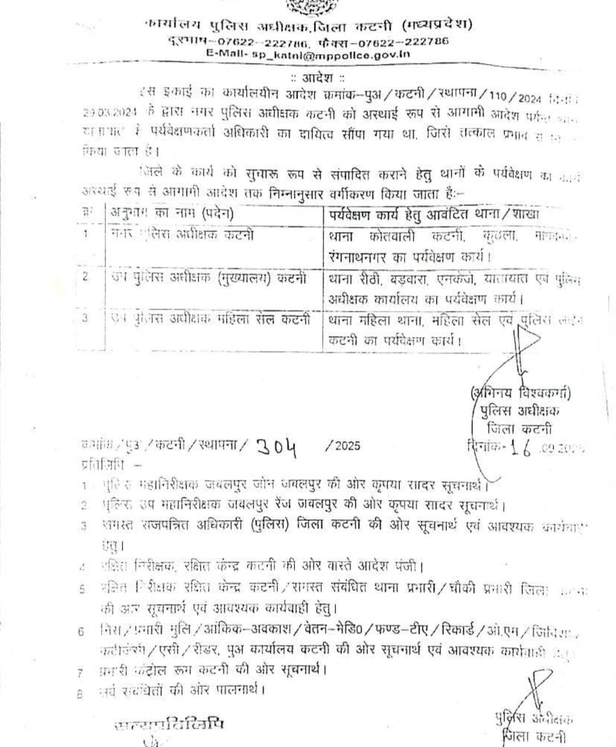 कार्यालय पुलिस अधीक्षक, जिला कटनी (मध्यप्रदेश)
दूरभाष-07622-222786, फैक्स-07622-222786
E-Mail- sp_katni@mppolice.gov.in
:: आदेश ::
इस इकाई का कार्यालयीन आदेश क्रमांक-पुअ/कटनी/स्थापना/110/2024
29.03.2024 के द्वारा नगर पुलिस अधीक्षक कटनी को अस्थाई रूप से आगामी आदेश
यातायात के पर्यवेक्षणकर्ता अधिकारी का दायित्व सौंपा गया था, जिसे तत्काल प्रभाव से
किया जाता है।
जिले के कार्य को सुचारू रूप से संपादित कराने हेतु थानों के पर्यवेक्षण का कार्य
अस्थाई रूप से आगामी आदेश तक निम्नानुसार वर्गीकरण किया जाता है:-
क्र अनुभाग का नाम (पदेन) पर्यवेक्षण कार्य हेतु आवंटित थाना/शाखा
1 नगर पुलिस अधीक्षक कटनी थाना कोतवाली कटनी, कुठला, माधवनगर
रंगनाथनगर का पर्यवेक्षण कार्य।
2 उप पुलिस अधीक्षक (मुख्यालय) कटनी थाना रीठी, बड़वारा, एनकेजे, यातायात एवं पुलिस
अधीक्षक कार्यालय का पर्यवेक्षण कार्य।
3 उप पुलिस अधीक्षक महिला सेल कटनी थाना महिला थाना, महिला सेल एवं पुलिस लाईन
कटनी का पर्यवेक्षण कार्य।
(अभिनय विश्वकर्मा)
पुलिस अधीक्षक
जिला कटनी
क्रमांक/पुअ/कटनी/स्थापना/ 304 /2025 दिनांक- 16 .09.2025
प्रतिलिपि -
1 पुलिस महानिरीक्षक जबलपुर जोन जबलपुर की ओर कृपया सादर सूचनार्थ।
2 पुलिस उप महानिरीक्षक जबलपुर रेंज जबलपुर की ओर कृपया सादर सूचनार्थ।
3 समस्त राजपत्रित अधिकारी (पुलिस) जिला कटनी की ओर सूचनार्थ एवं आवश्यक कार्यवाही
हेतु।
4 रक्षित निरीक्षक, रक्षित केन्द्र कटनी की ओर वास्ते आदेश पंजी।
5 रक्षित निरीक्षक रक्षित केन्द्र कटनी/समस्त संबंधित थाना प्रभारी/चौकी प्रभारी जिला कटनी
की ओर सूचनार्थ एवं आवश्यक कार्यवाही हेतु।
6 प्रभारी मुलि/आंकिक-अवकाश/वेतन-मेडि0/फण्ड-टीए/रिकार्ड/ओ.एम/
/एसी/रीडर, पुअ कार्यालय कटनी की ओर सूचनार्थ एवं आवश्यक कार्यवाही हेतु।
7 प्रभारी कंट्रोल रूम कटनी की ओर सूचनार्थ।
8 सर्व संबंधितों की ओर पालनार्थ।
सत्यप्रतिलिपि
पुलिस अधीक्षक
जिला कटनी